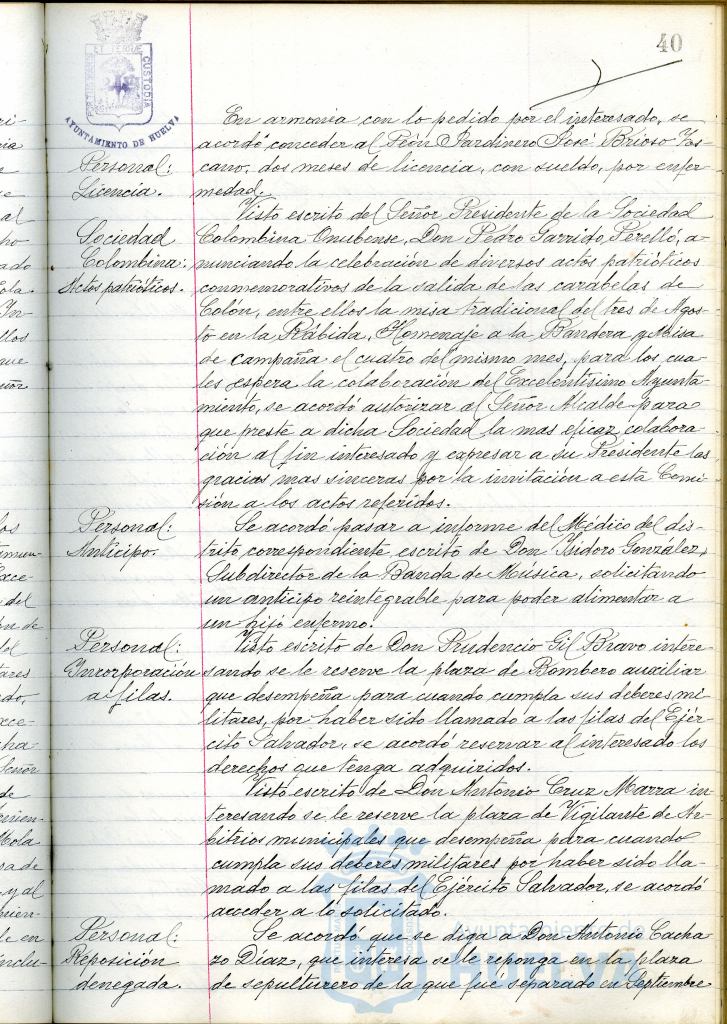 40
ET TERRÆ
CUSTODIA
AYUNTAMIENTO DE HUELVA
En armonía con lo pedido por el interesado, se
acordó conceder al Peón Jardinero José Brioso Jas-
Personal:
cano, dos meses de licencia, con sueldo, por enfer
Licencia.
medad.
Visto escrito del Señor Presidente de la Sociedad
Sociedad
Colombina Onubense, Don Pedro Garrido Perelló, a-
Colombina:
nunciando la celebración de diversos actos patrióticos
Actos patrióticos.
conmemorativos de la salida de las carabelas de
Colón, entre ellos la misa tradicional del tres de Agos-
to en la Rábida, Homenaje a la Bandera y Misa
de campaña el cuatro del mismo mes, para los cua-
les espera la colaboración del Excelentísimo Ayunta-
miento, se acordó autorizar al Señor Alcalde para
que preste a dicha Sociedad la mas eficaz colabora-
ción al fin interesado y expresar a su Presidente las
gracias mas sinceras por la invitación a esta Comi-
sión a los actos referidos.
Personal:
Se acordó pasar a informe del Médico del dis-
Anticipo.
trito correspondiente escrito de Don Isidoro González,
Subdirector de la Banda de Música, solicitando
un anticipo reintegrable para poder alimentar a
un hijo enfermo.
Personal:
Visto escrito de Don Prudencio Gil Bravo intere-
Incorporación
sando se le reserve la plaza de Bombero auxiliar
a filas.
que desempeña para cuando cumpla sus deberes mi-
litares, por haber sido llamado a las filas del Ejér-
cito Salvador, se acordó reservar al interesado los
derechos que tenga adquiridos.
Visto escrito de Don Antonio Cruz Marra in-
teresando se le reserve la plaza de Vigilante de Ar-
bitrios municipales que desempeña para cuando
cumpla sus deberes militares por haber sido lla-
mado a las filas del Ejército Salvador, se acordó
acceder a lo solicitado.
Personal:
Se acordó que se diga a Don Antonio Cacha-
Reposición
zo Díaz, que interesa se le reponga en la plaza
denegada.
de sepulturero de la que fué separado en Septiembre
Ayuntamiento de
HUELVA